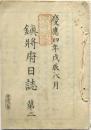 慶應四年戊辰八月
鎮將府日誌 第二